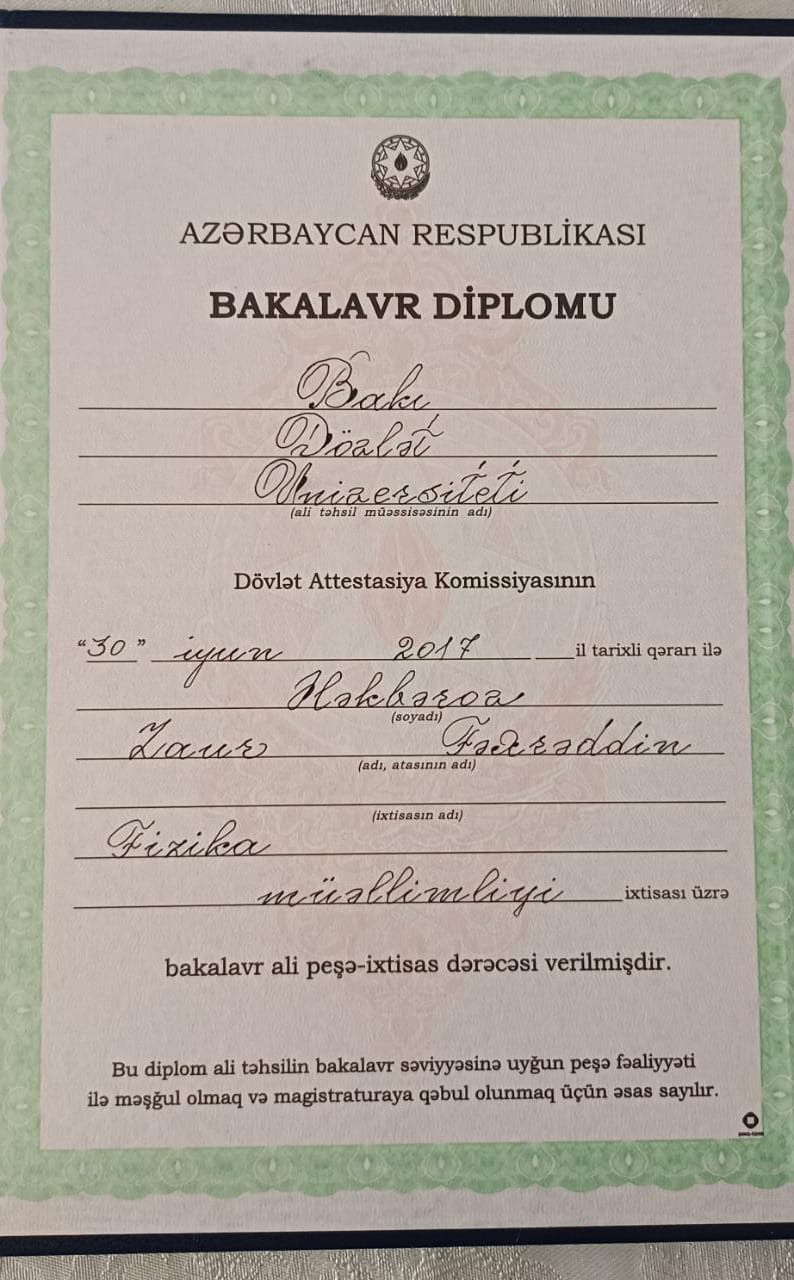 AZƏRBAYCAN RESPUBLİKASI
BAKALAVR DİPLOMU
Bakı
Dövlət
Universiteti
(ali təhsil müəssisəsinin adı)
Dövlət Attestasiya Komissiyasının
"30" iyun 2017 il tarixli qərarı ilə
Ələkbərov
(soyadı)
Zaur Fəxrəddin
(adı, atasının adı)
(ixtisasın adı)
Fizika
müəllimliyi ixtisası üzrə
bakalavr ali peşə-ixtisas dərəcəsi verilmişdir.
Bu diplom ali təhsilin bakalavr səviyyəsinə uyğun peşə fəaliyyəti
ilə məşğul olmaq və magistraturaya qəbul olunmaq üçün əsas sayılır.